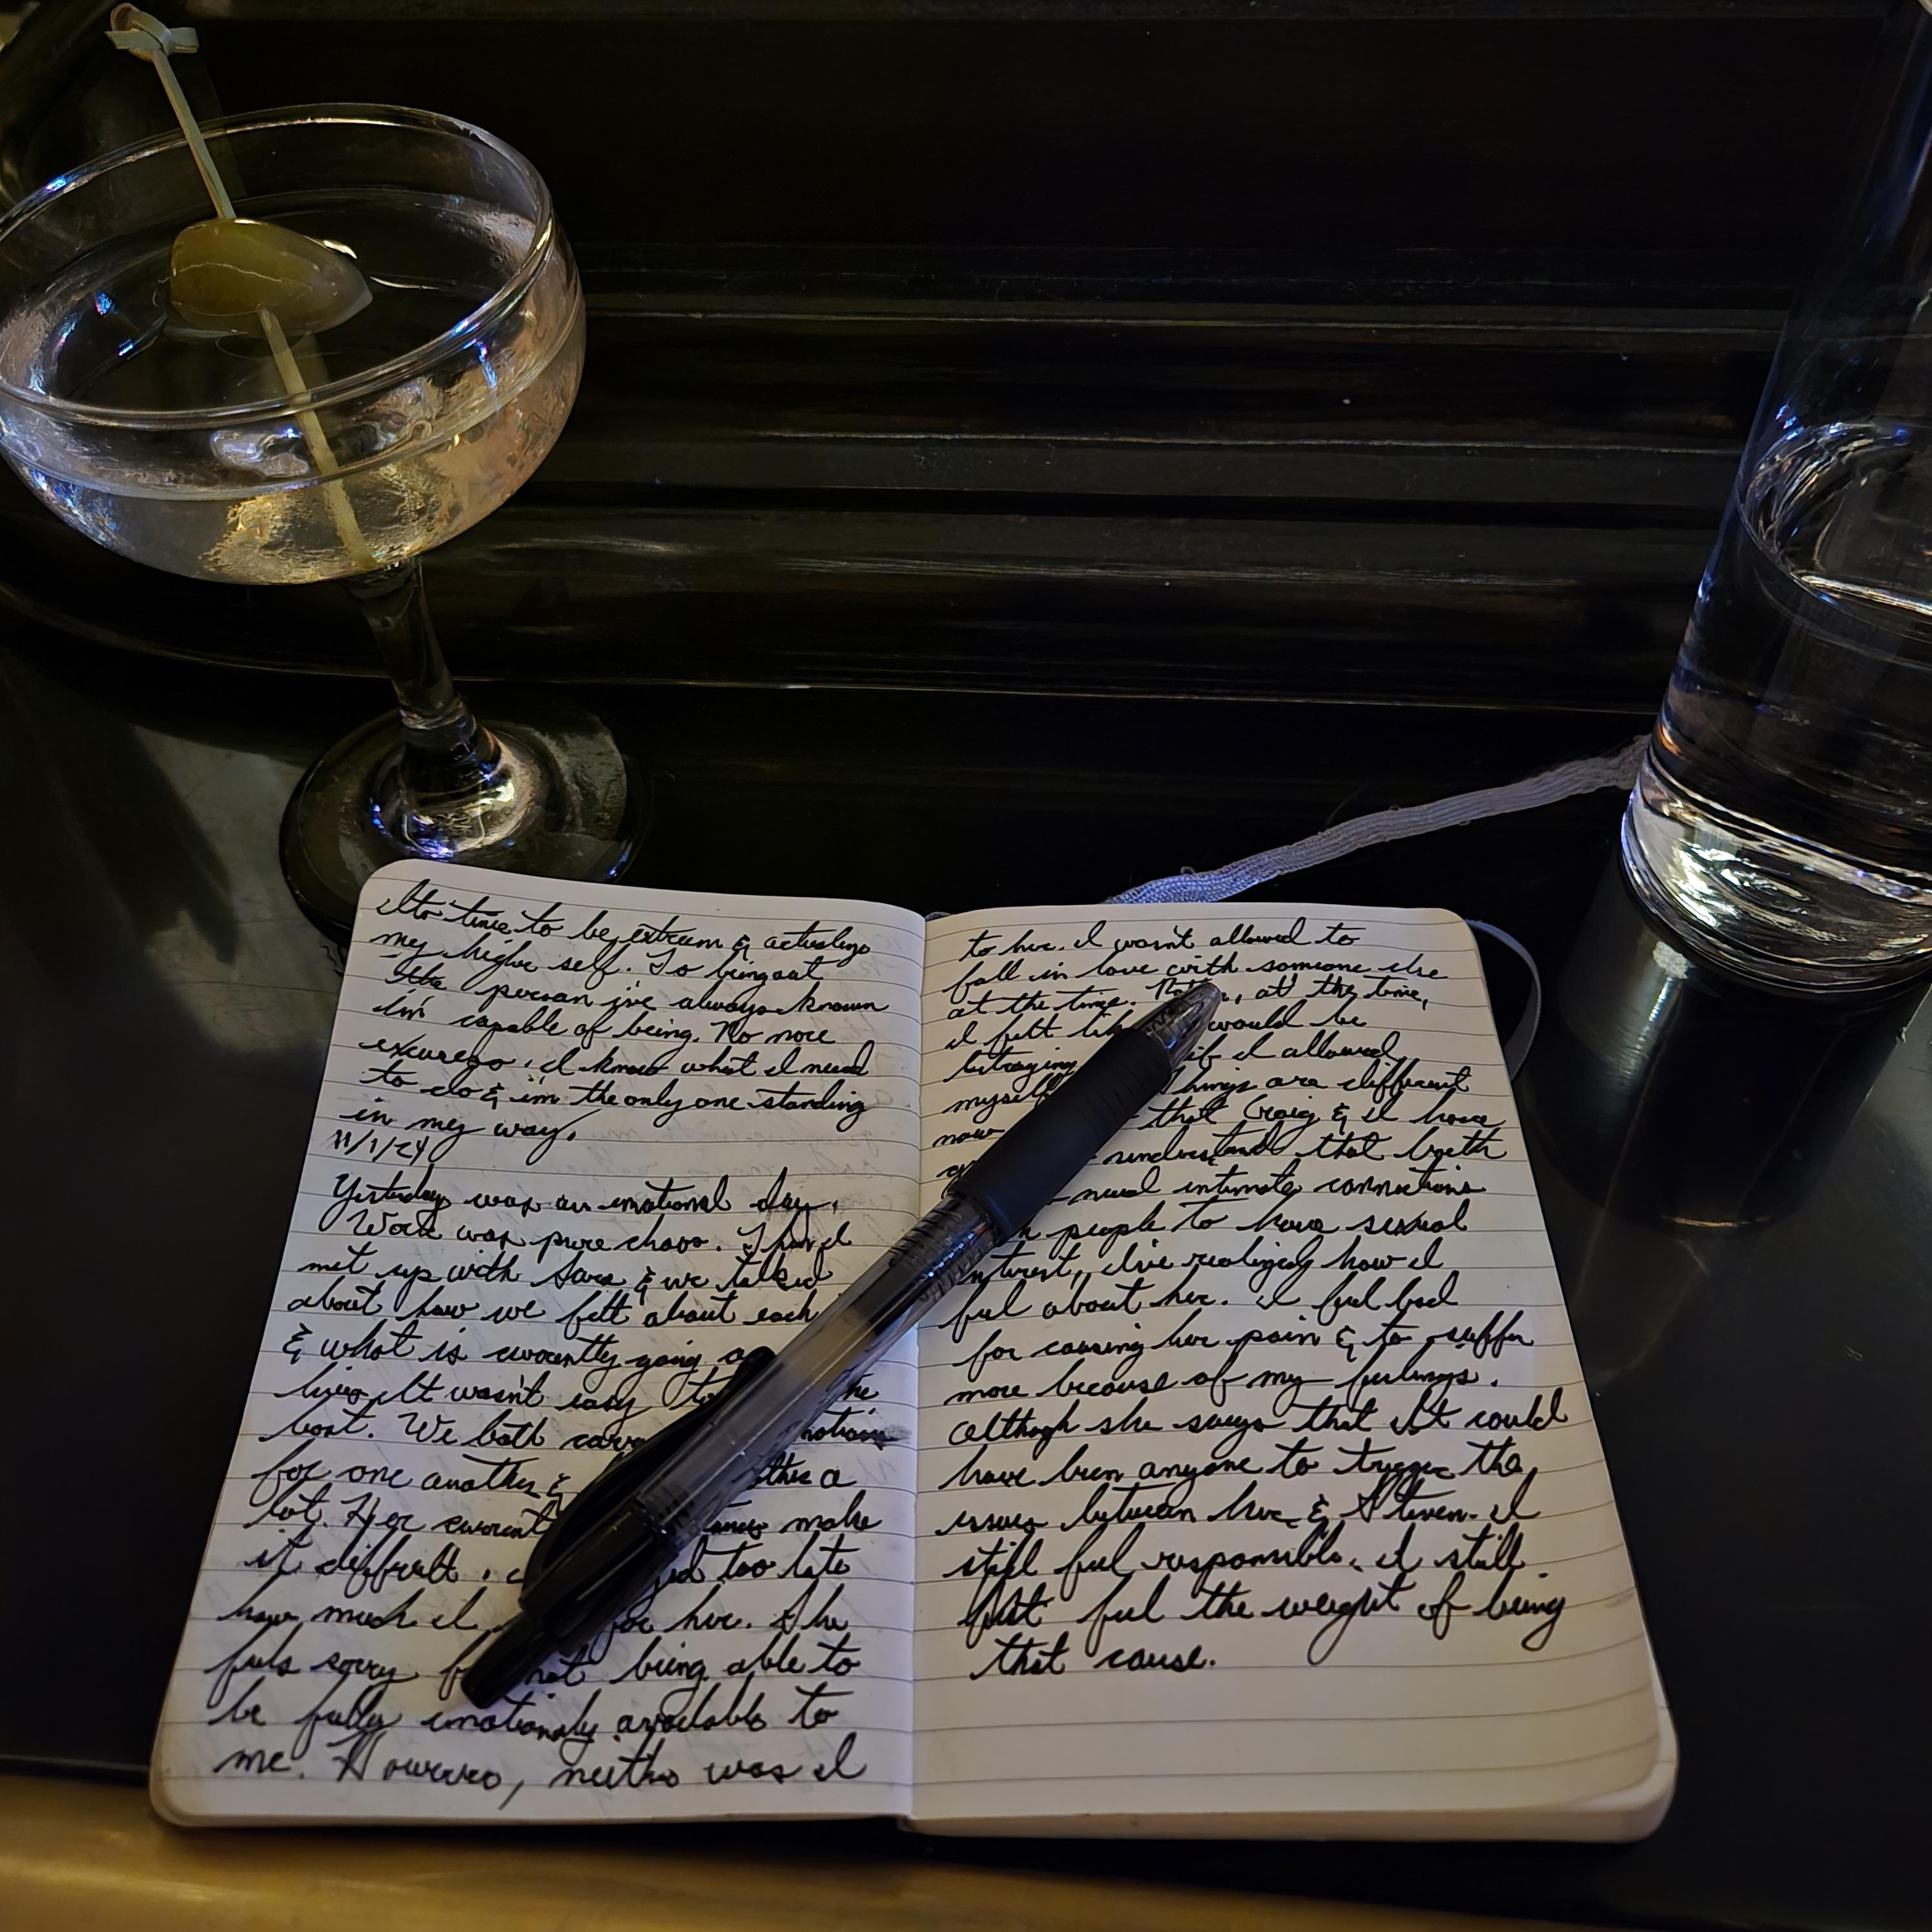 Its time to be extream & actualize
my higher self. To bring out
the person i've always known
i'm capable of being. No more
excuses. I know what I need
to do & i'm the only one standing
in my way.
11/1/24
Yesterday was an emotional day.
Work was pure chaos. Then I
met up with Sara & we talked
about how we felt about each
& what is currently going
lives. It wasn't easy to the
boat. We both
for one another & a
lot. Her make
it difficult. too late
how much I for her. She
feels sorry not being able to
be fully emotionaly available to
me. However, neither was I
to her. I wasn't allowed to
fall in love with someone else
at the time. at the time,
I felt would be
betraying if I allowed
myself. Things are different
now that Craig & I have
understand that both
need intimate connections
people to have sexual
interest, I've realized how I
feel about her. I feel bad
for causing her pain & to suffer
more because of my feelings.
Although she says that it could
have been anyone to trigger the
issues between her & Steven. I
still feel responsible. I still
feel the weight of being
that cause.